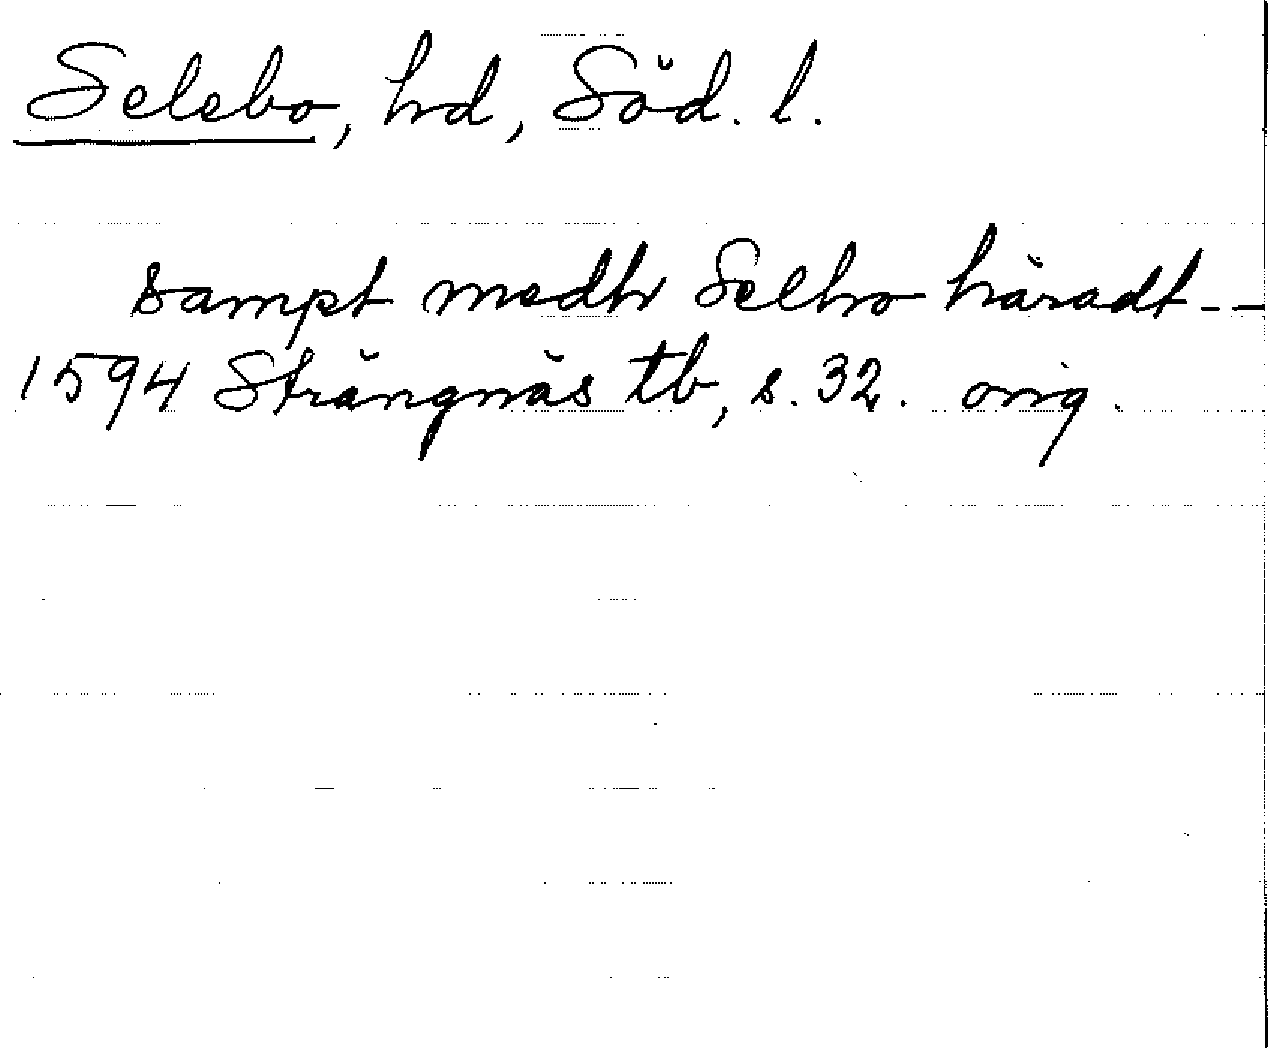 Selebo, hd, Söd. l.
sampt medh Selbo häradt --
1594 Strängnäs tb, s. 32. orig.